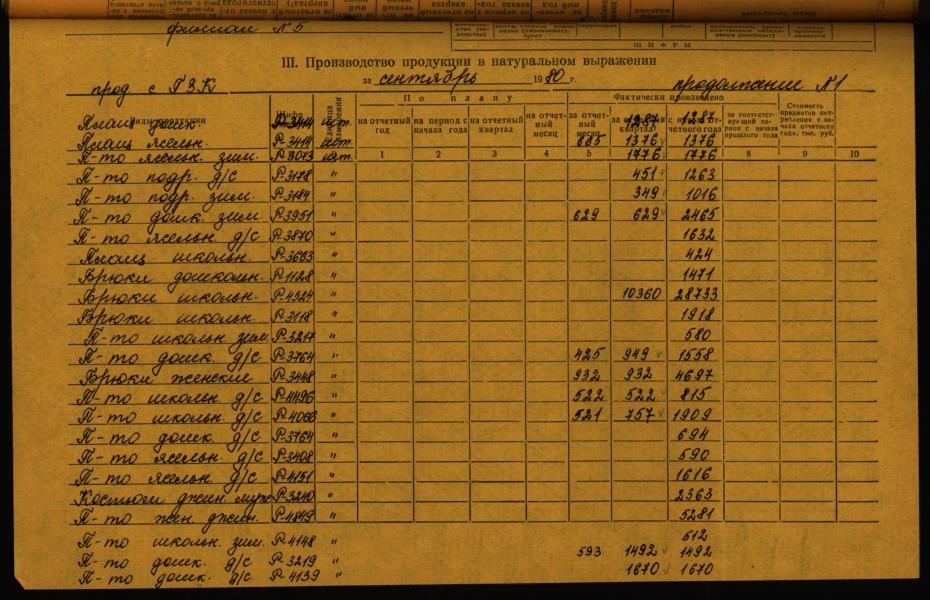 филиал N 5
ШИФРЫ
III. Производство продукции в натуральном выражении
прод с ГЗК за сентябрь 1980 г. продолжение N1
По плану Фактически произведено
Виды продукции единица измерения на отчетный год на период с начала года на отчетный квартал на отчетный месяц за отчетн. месяц за соответствующий период с начала прошлого года Стоимость предметов потребления с начала отчетного года, тыс. руб.
1 2 3 4 5 8 9 10
Плащ дошк. Р-3414 шт. 1287 1287
Плащ ясельн. Р-3414 шт. 665 1376 1376
П-то ясельн. зим. Р-3073 шт. 1776 1776
П-то подр. д/с Р-3178 " 451 1263
П-то подр. зим. Р-3184 " 349 1016
П-то дошк. зим. Р-3951 " 629 629 2465
П-то ясельн. д/с Р-3870 " 1632
Плащ школьн. Р-3663 " 424
Брюки дошкольн. Р-1128 " 1471
Брюки школьн. Р-4324 " 10360 28733
Брюки школьн. Р-3118 " 1918
П-то школьн. зим. Р-3217 " 580
П-то дошк. д/с Р-3764 " 425 949 1558
Брюки женские Р-3448 " 932 932 4697
П-то школьн. д/с Р-4496 " 522 522 815
П-то школьн. д/с Р-4066 " 521 757 1909
П-то дошк. д/с Р-3764 " 694
П-то ясельн. д/с Р-3408 " 590
П-то ясельн. д/с Р-4151 " 1616
Костюм джин. муж Р-3240 " 2363
П-то жен. джин. Р-4849 " 5281
П-то школьн. зим. Р-4148 " 512
П-то дошк. д/с Р-3219 " 593 1492 1492
П-то дошк. д/с Р-4139 " 1670 1670